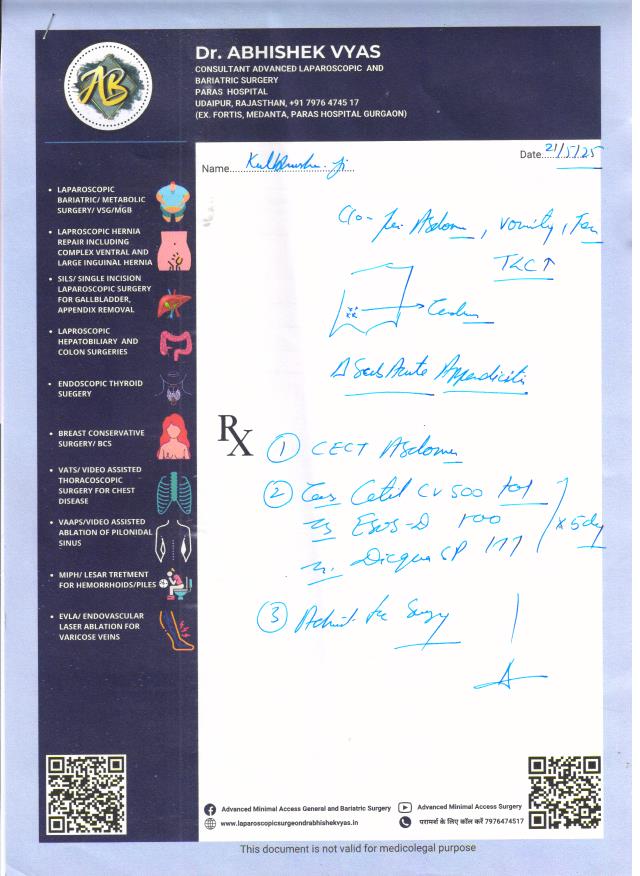 Dr. ABHISHEK VYAS
CONSULTANT ADVANCED LAPAROSCOPIC AND
BARIATRIC SURGERY
PARAS HOSPITAL
UDAIPUR, RAJASTHAN, +91 7976 4745 17
(EX. FORTIS, MEDANTA, PARAS HOSPITAL GURGAON)
AB
Date: 21/5/25
Name ji
LAPAROSCOPIC
BARIATRIC/ METABOLIC
SURGERY/ VSG/MGB
LAPROSCOPIC HERNIA
REPAIR INCLUDING
COMPLEX VENTRAL AND
LARGE INGUINAL HERNIA
SILS/ SINGLE INCISION
LAPAROSCOPIC SURGERY
FOR GALLBLADDER,
APPENDIX REMOVAL
LAPROSCOPIC
HEPATOBILIARY AND
COLON SURGERIES
ENDOSCOPIC THYROID
SUEGERY
BREAST CONSERVATIVE
SURGERY/ BCS
VATS/ VIDEO ASSISTED
THORACOSCOPIC
SURGERY FOR CHEST
DISEASE
VAAPS/VIDEO ASSISTED
ABLATION OF PILONIDAL
SINUS
MIPH/ LESAR TRETMENT
FOR HEMORRHOIDS/PILES
EVLA/ ENDOVASCULAR
LASER ABLATION FOR
VARICOSE VEINS
C/o - Abdomen, vomiting,
TLC↑
Δ Sub Acute Appendicitis
Rx
① CECT Abdomen
② Cetil CV 500 101
100
SP 111
x 5 day
③ Admit for Surgery
Advanced Minimal Access General and Bariatric Surgery
Advanced Minimal Access Surgery
www.laparoscopicsurgeondrabhishekvyas.in
परामर्श के लिए कॉल करें 7976474517
This document is not valid for medicolegal purpose